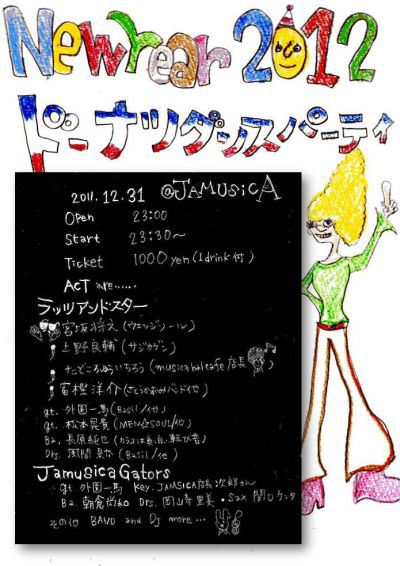 New Year 2012
ドーナツダンスパーティ
2011.12.31 @JAMUSICA
Open 23:00
Start 23:30〜
Ticket 1000 yen (1drink付)
ACT are......
ラッツアンドスター
宮坂将之 (ウエッジソール)
上野良輔 (サジカゲン)
たどころゆういちろう (musica hall cafe 店長)
富樫洋介
gt. 外園一馬 (Basil/他)
gt. 松本 (MEN☆SOUL/他)
Ba. 長原純也 (カラスは真白、転び音)
Drs. 風間 (Basil/他)
Jamusica Gators
gt 外園一馬 Key. JAMSICA店長 次郎さん
Ba. 朝倉 Drs. 岡山寺里美・Sax 関口ケンタ
その他 BAND and DJ more...